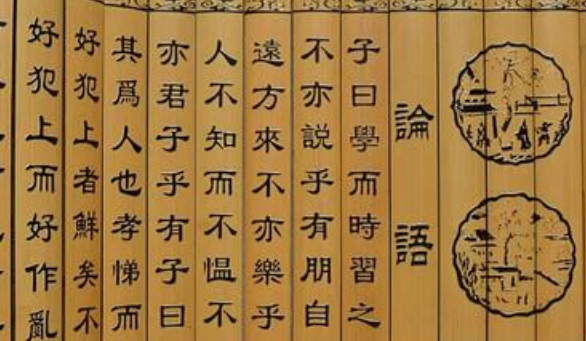 論語
子曰學而時習之
不亦説乎有朋自
遠方來不亦樂乎
人不知而不愠不
亦君子乎有子曰
其爲人也孝悌而
好犯上者鮮矣不
好犯上而好作亂